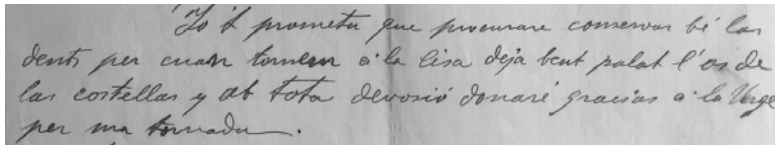 Jo t prometu que procurare conservar bé las
dents per cuan tornem á la Lisa deja bent palat l'os de
las costellas y ab tota devosió donaré gracias á la Verge
per ma tornada.